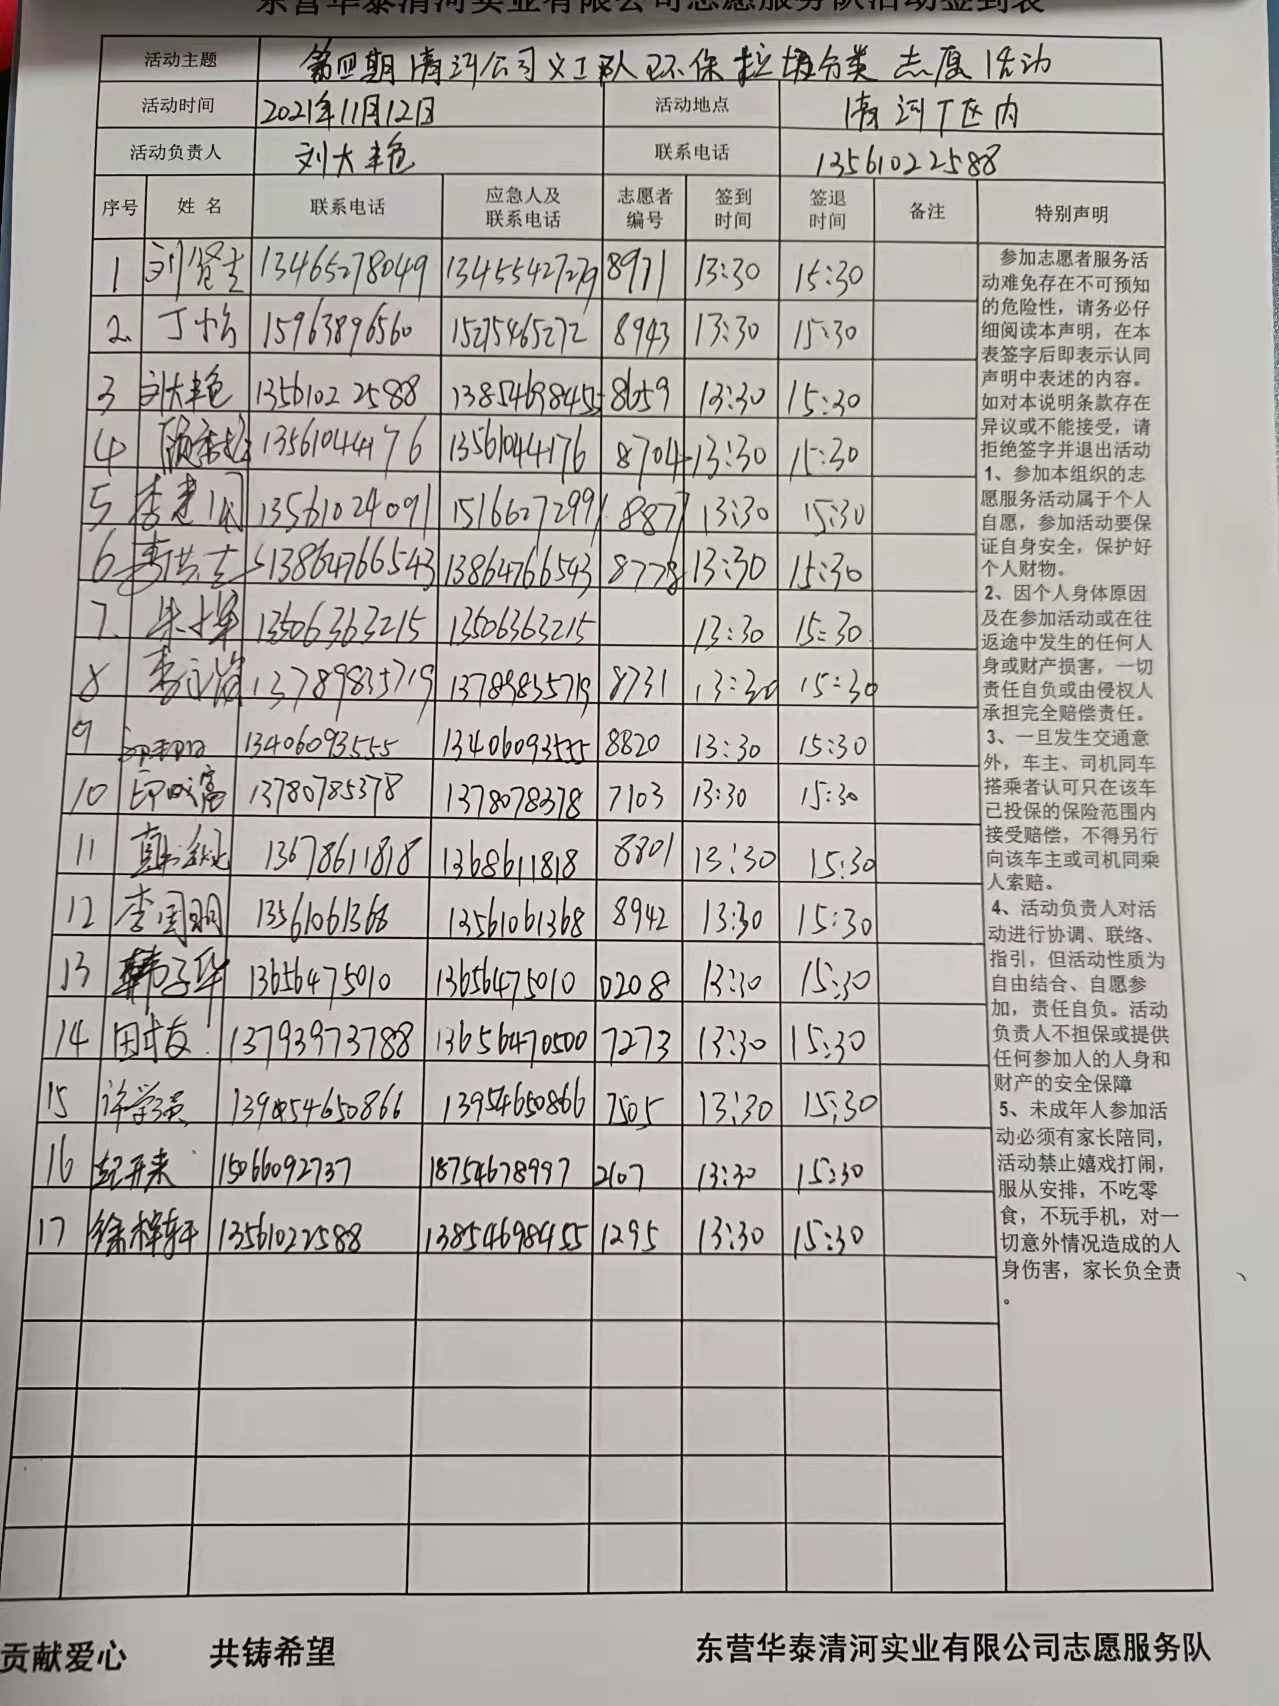 东营华泰清河实业有限公司志愿服务队活动签到表
活动主题 第四期清河公司义工队环保垃圾分类志愿活动
活动时间 2021年11月12日 活动地点 清河厂区内
活动负责人 刘大艳 联系电话 13561022588
序号 姓名 联系电话 应急人及联系电话 志愿者编号 签到时间 签退时间 备注 特别声明
1 13465278049 13455427279 8971 13:30 15:30
2 15963896560 15275465272 8943 13:30 15:30
3 刘大艳 13561022588 13854698455 8659 13:30 15:30
4 13561044176 13561044176 8704 13:30 15:30
5 李建 13561024091 15166272991 8877 13:30 15:30
6 13864766543 13864766543 8778 13:30 15:30
7 13506363215 13506363215 13:30 15:30
8 13789835719 13789835719 8731 13:30 15:30
9 13406093555 13406093555 8820 13:30 15:30
10 13780785378 1378078378 7103 13:30 15:30
11 13678611818 1368611818 8801 13:30 15:30
12 李国明 13561061368 13561061368 8942 13:30 15:30
13 韩子华 13656475010 13656475010 0208 13:30 15:30
14 田才友 13793973788 13656470500 7273 13:30 15:30
15 许学强 13954650866 13954650866 7505 13:30 15:30
16 赵开来 15066092737 18754678997 2107 13:30 15:30
17 徐梓轩 13561022588 13854698455 1295 13:30 15:30
参加志愿者服务活
动难免存在不可预知
的危险性，请务必仔
细阅读本声明，在本
表签字后即表示认同
声明中表述的内容。
如对本说明条款存在
异议或不能接受，请
拒绝签字并退出活动
1、参加本组织的志
愿服务活动属于个人
自愿，参加活动要保
证自身安全，保护好
个人财物。
2、因个人身体原因
及在参加活动或在往
返途中发生的任何人
身或财产损害，一切
责任自负或由侵权人
承担完全赔偿责任。
3、一旦发生交通意
外，车主、司机同车
搭乘者认可只在该车
已投保的保险范围内
接受赔偿，不得另行
向该车主或司机同乘
人索赔。
4、活动负责人对活
动进行协调、联络、
指引，但活动性质为
自由结合、自愿参
加，责任自负。活动
负责人不担保或提供
任何参加人的人身和
财产的安全保障
5、未成年人参加活
动必须有家长陪同，
活动禁止嬉戏打闹，
服从安排，不吃零
食，不玩手机，对一
切意外情况造成的人
身伤害，家长负全责
。
贡献爱心 共铸希望 东营华泰清河实业有限公司志愿服务队